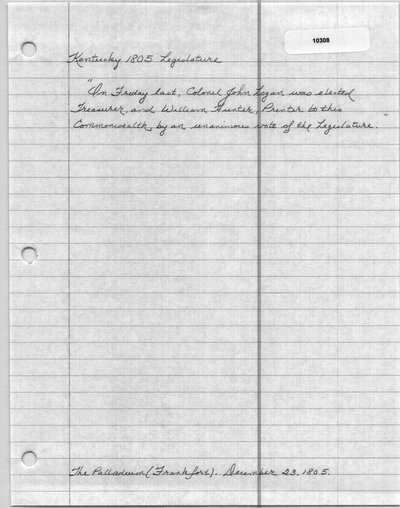 10308
Kentucky 1805 Legislature
"On Friday last, Colonel John Logan was elected
Treasurer, and William Hunter, Printer to this
Commonwealth, by an unanimous vote of the Legislature."
The Palladium (Frankfort). December 23, 1805.